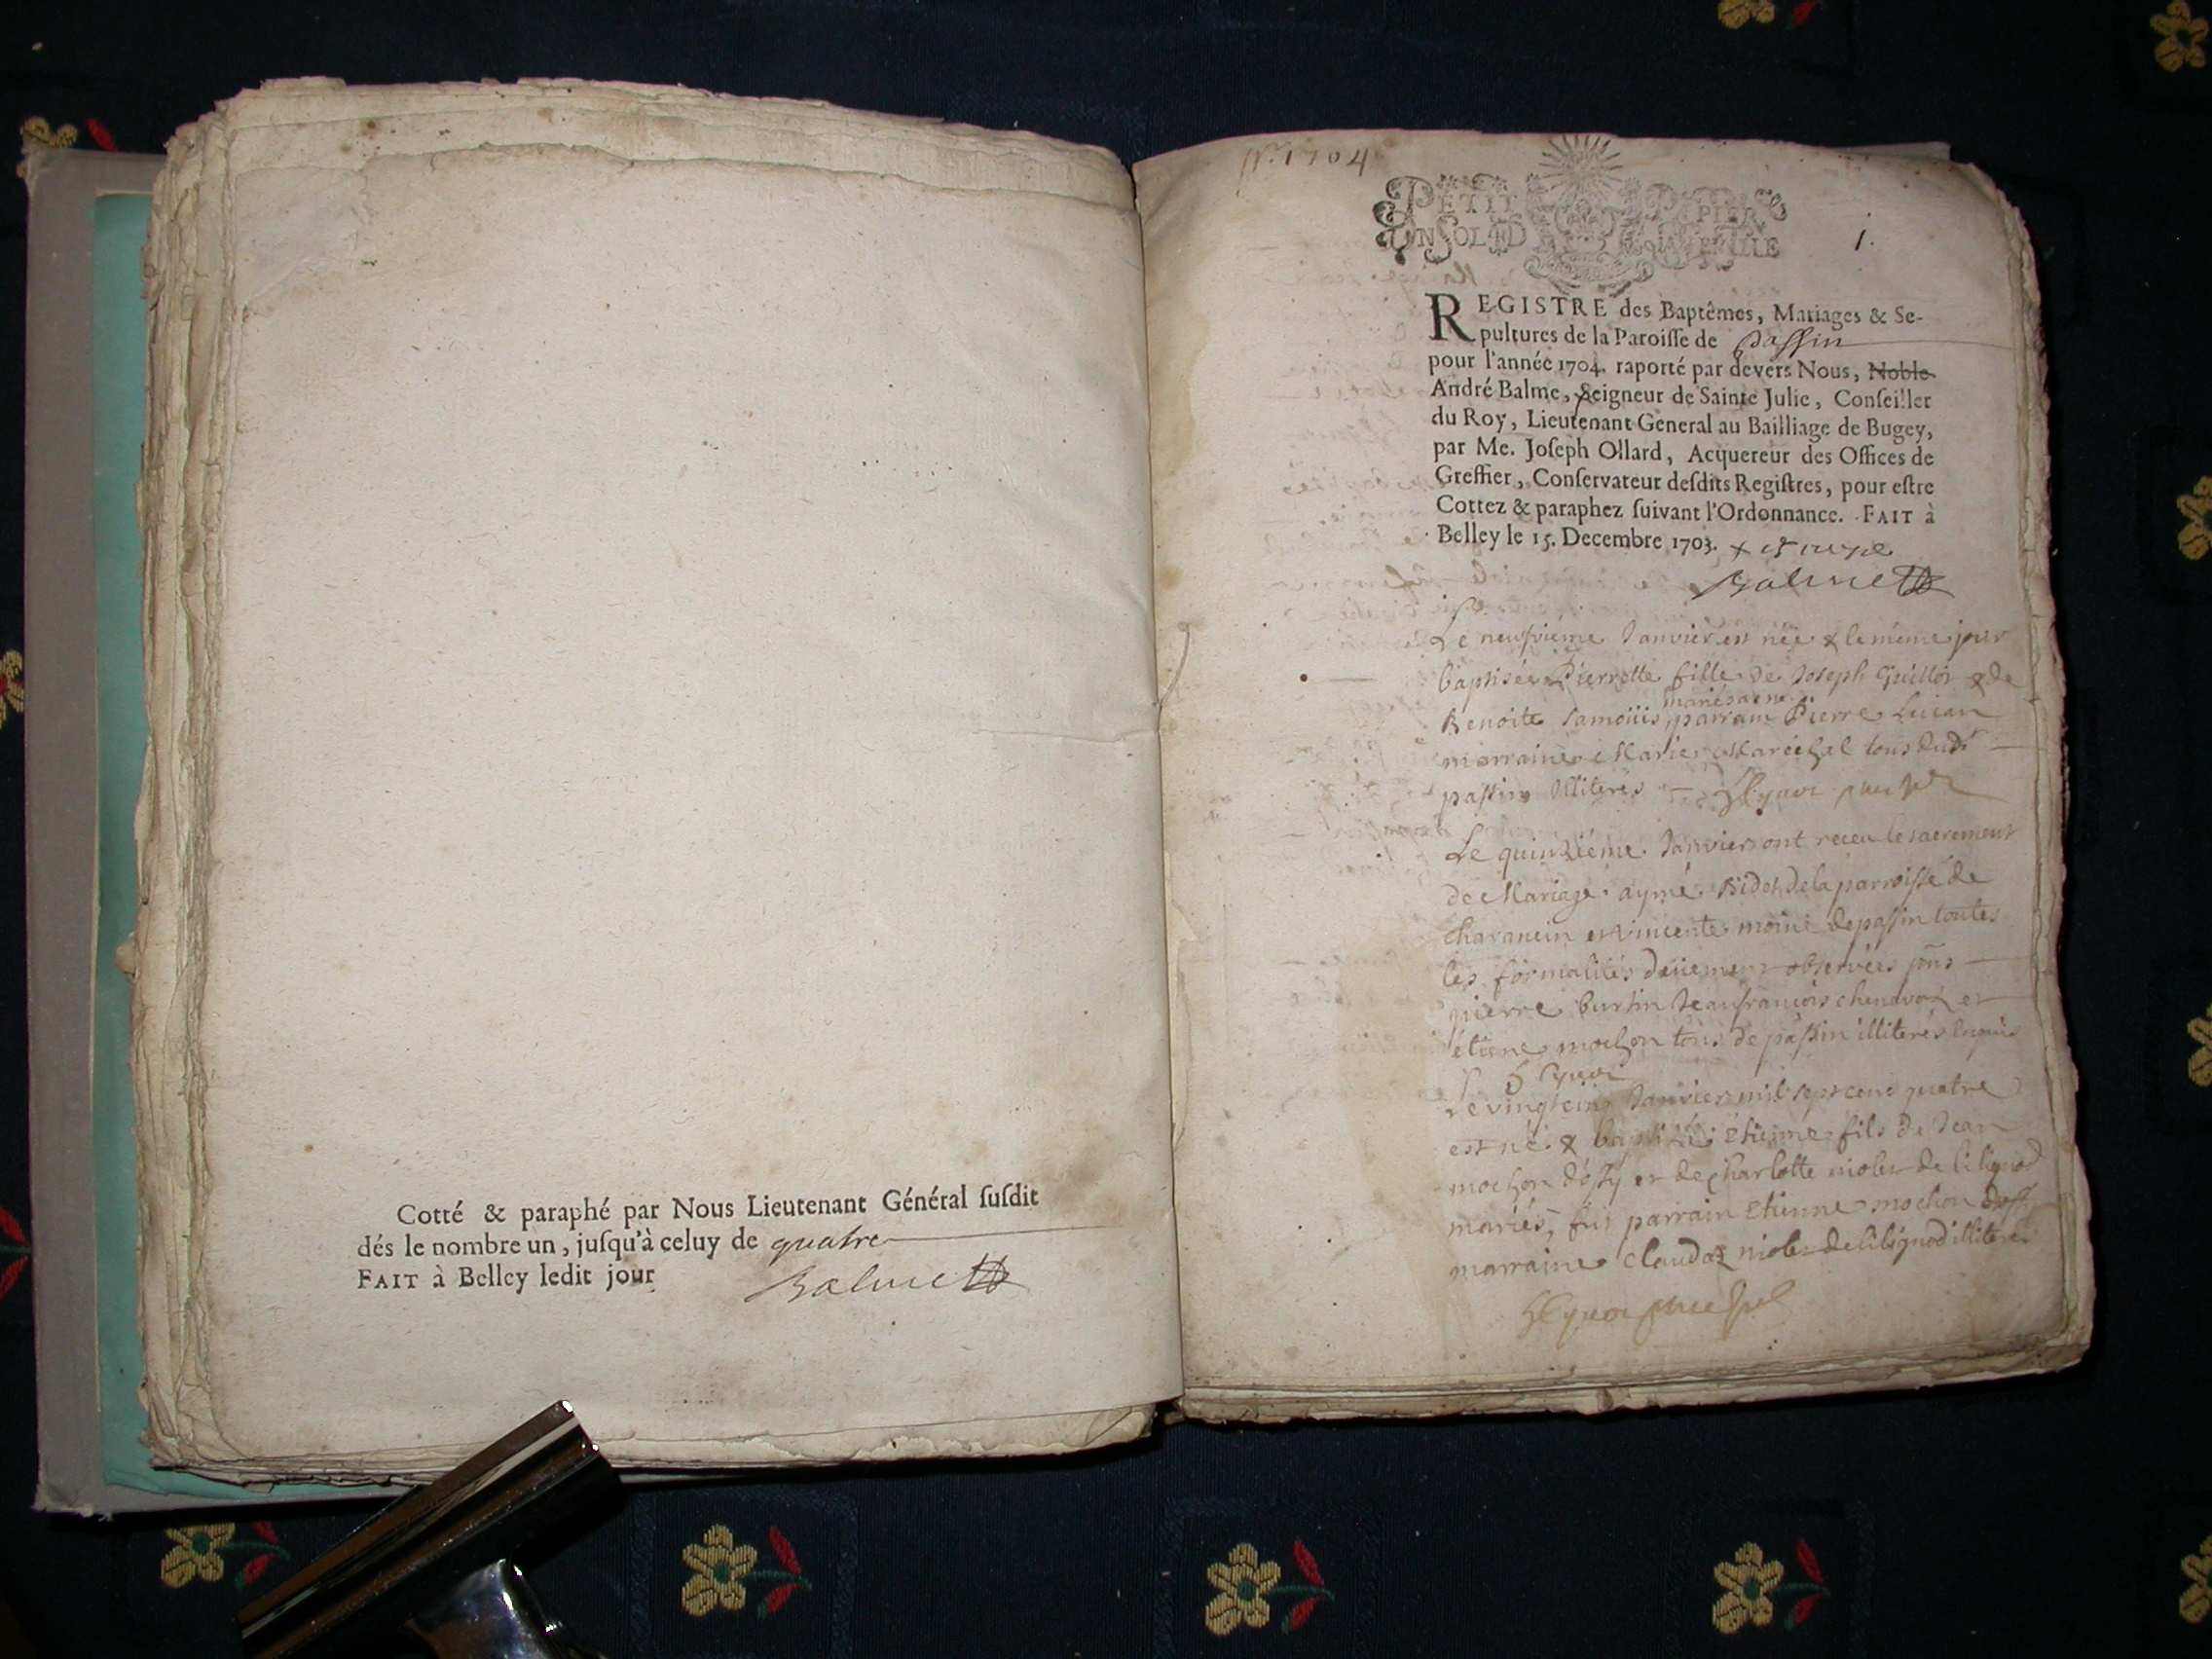 Cotté & paraphé par Nous Lieutenant Général ſuſdit
dés le nombre un, juſqu'à celuy de quatre
FAIT à Belley ledit jour
Balme
1704
PETIT PAPIER
UN SOL LD LA FEUILLE
1.
REGISTRE des Baptêmes, Mariages & Se-
pultures de la Paroiſſe de passin
pour l'année 1704. raporté par devers Nous, Noble
André Balme, Seigneur de Sainte Julie, Conſeiller
du Roy, Lieutenant General au Bailliage de Bugey,
par Me. Joſeph Ollard, Acquereur des Offices de
Greffier, Conſervateur deſdits Regiſtres, pour eſtre
Cottez & paraphez ſuivant l'Ordonnance. FAIT à
Belley le 15. Decembre 1703.
Balme
Le neufvième Janvier est née & le même jour
baptisée Pierrette fille de Joseph Guillot & de
mariés
Benoite parrain Pierre
marraine Marie Maréchal tous dudi
passin illiterés
Le quinzième Janvier ont receu le sacrement
de Mariage aymé Bidet de la parroisse de
charancin et vincente moine de passin toutes
les formalités deüement observées
pierre burtin Jean françois et
étiene mochon tous de passin illiterés
Le vingt Janvier mil sept cent quatre
est né & baptisé Etienne fils de Jean
mochon et de charlotte de lilignod
mariés, fut parrain Etienne mochon
marraine claudaz de lilignod illiterés